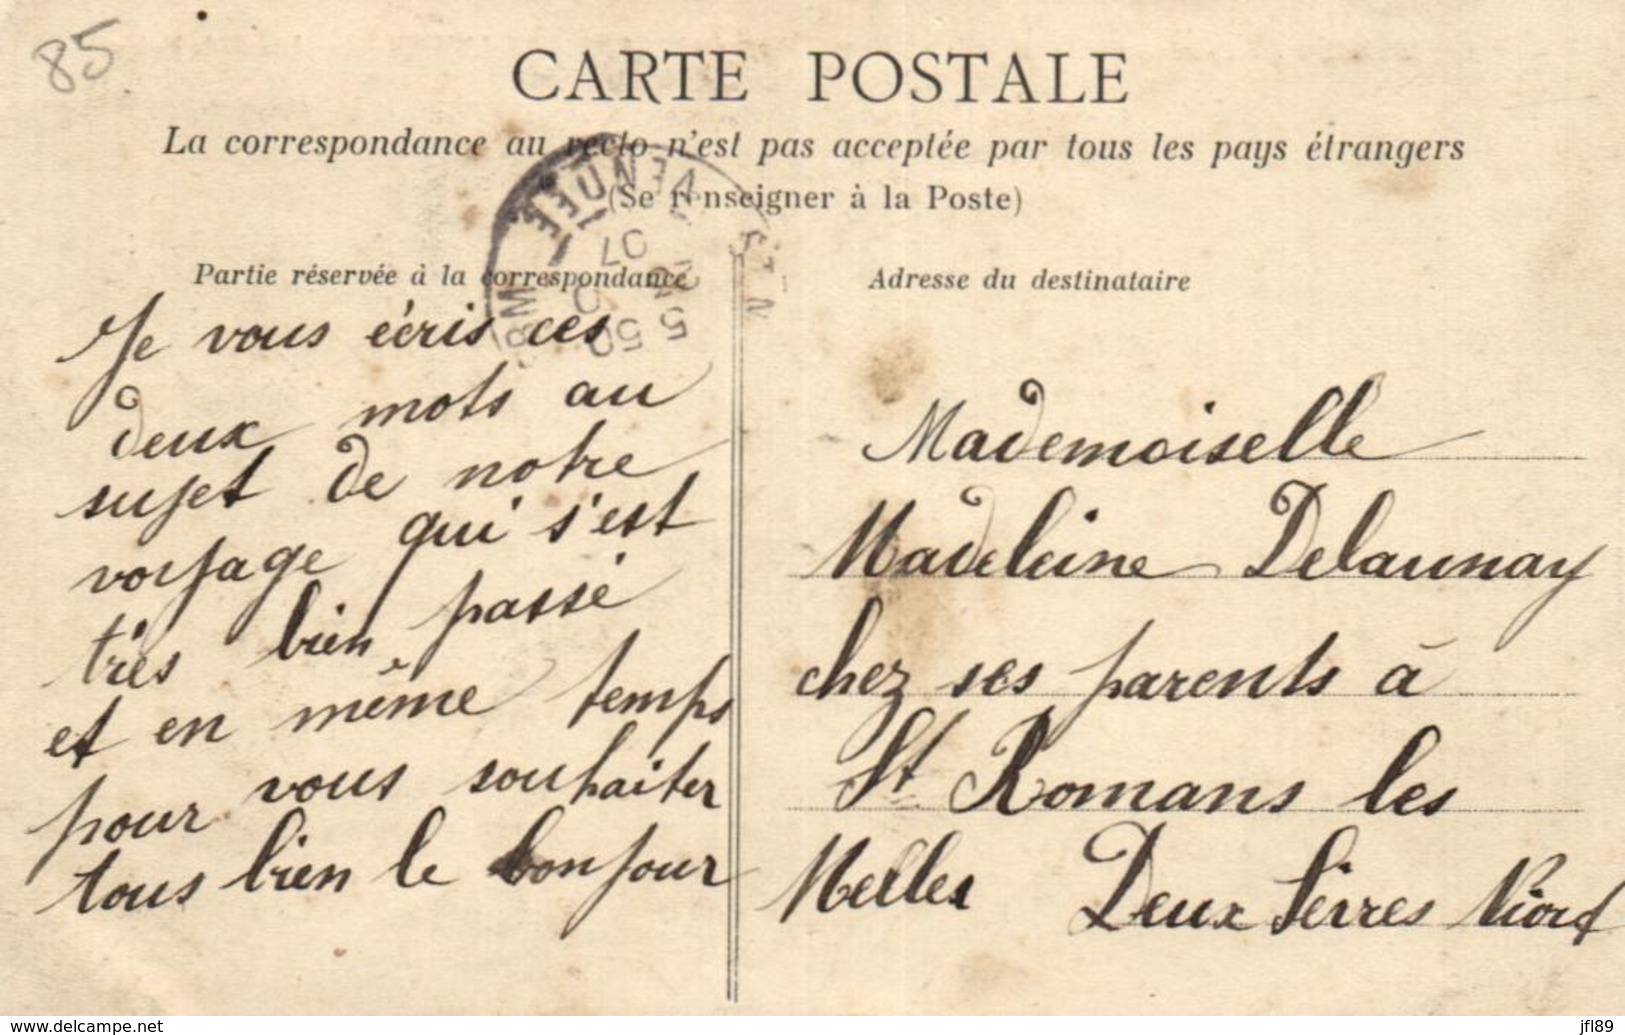 85
CARTE POSTALE
La correspondance au recto n'est pas acceptée par tous les pays étrangers
(Se renseigner à la Poste)
VENDÉE
07
Partie réservée à la correspondance
Je vous écris ces
deux mots au
sujet de notre
voyage qui s'est
très bien passé
et en même temps
pour vous souhaiter
tous bien le bonjour
Adresse du destinataire
Mademoiselle
Madeleine Delaunay
chez ses parents à
St Romans les
Melles Deux Sèvres Niort
www.delcampe.net
jfl89